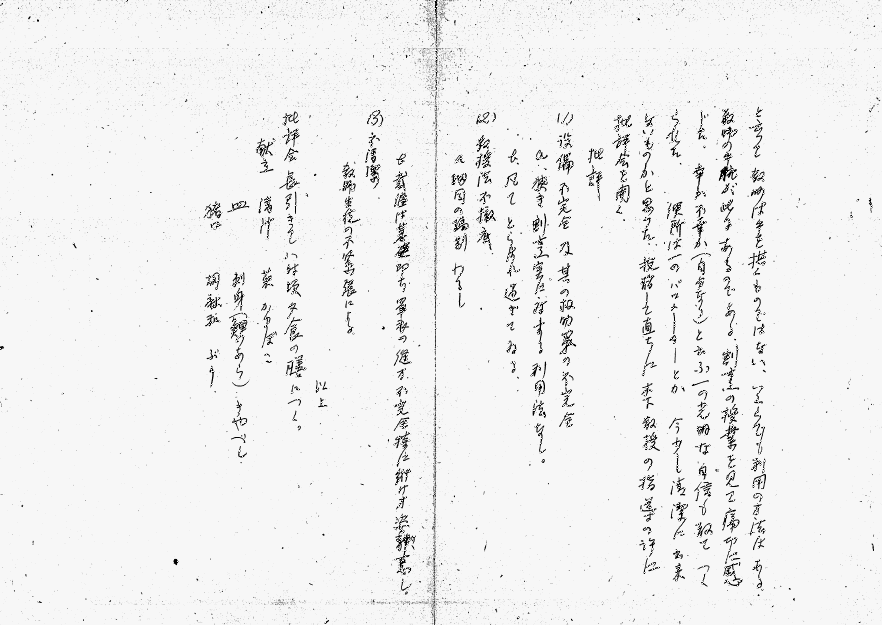 と云って教師は手を拱くものではない、いくらでも利用の方法はある。
教師の手腕が此処にあるのである。割烹の授業を見て痛切に感
じた。幸か不幸か(自分なら)と云ふ一の光明な自信も敢てつく
られた。便所は一のバロメーターとか 今少し清潔に出来
ないものかと思った。授終して直ちに 教授の指導の許に
批評会を開く
批評
(1) 設備不完全及其の救助策の不完全
a. 狭き割烹室に対する利用法なし。
b. 凡てとらはれ過ぎてゐる。
(2) 教授法不徹底
a 細目の識別わるし
b 裁縫は基礎即ち 不完全特に 姿勢悪し。
(3) 不清潔
教師生徒の不緊張による
以上
批評会長引きて八時頃夕食の膳につく。
献立 清汁 菜 かまぼこ
皿 刺身(鯉のあら)きやべし
猪口 ぶり